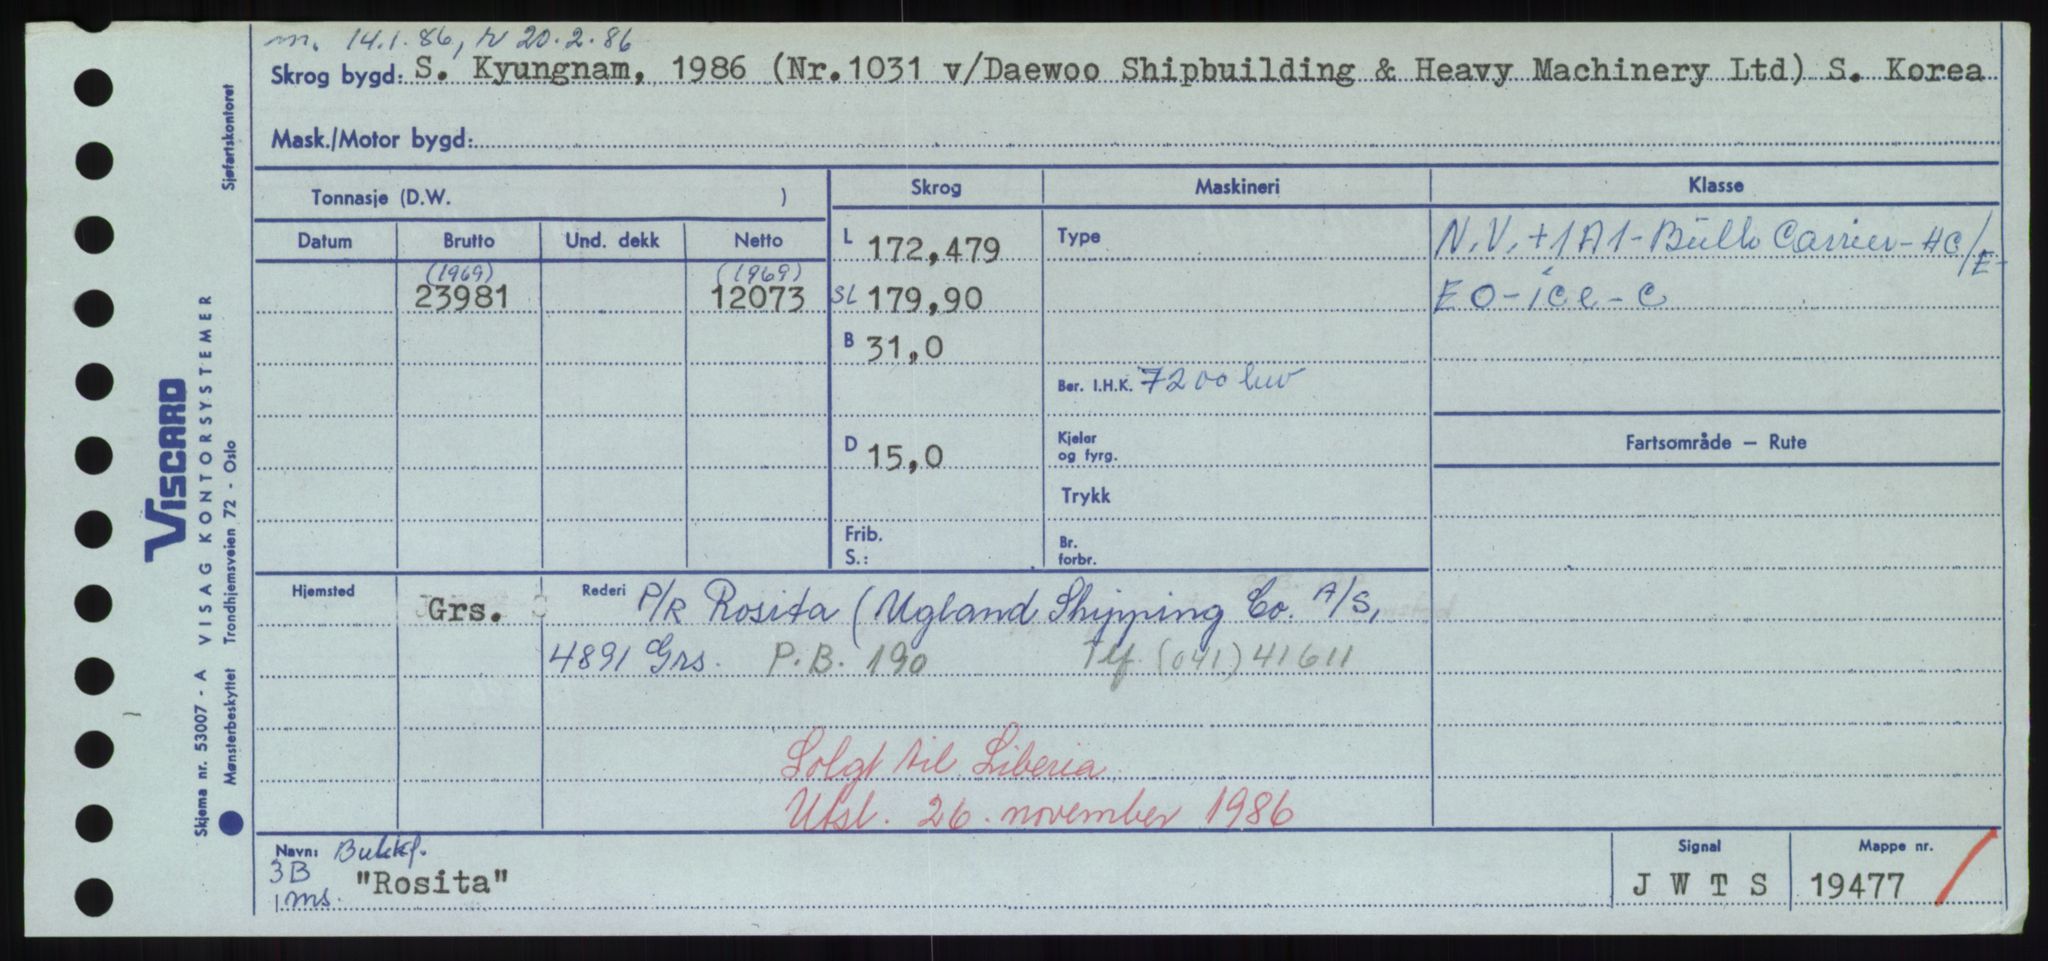 m. 14.1.86, r 20.2.86
Skrog bygd: S. Kyungnam, 1986 (Nr.1031 v/Daewoo Shipbuilding & Heavy Machinery Ltd) S. Korea
Mask./Motor bygd:
Tonnasje (D.W. )
Skrog
Maskineri
Klasse
Datum
Brutto
Und. dekk
Netto
(1969)
(1969)
23981
12073
L 172,479
SL 179,90
B 31,0
D 15,0
Frib.
S.:
Type
Ber. I.H.K. 7200 kw
Kjeler
og fyrg.
Trykk
Br.
forbr.
N.V. +1A1-Bulk Carrier-HC/E-
EO-ice-C
Fartsområde – Rute
Hjemsted
Grs.
Rederi P/R Rosita (Ugland Shipping Co. A/S,
4891 Grs. P.B. 190 Tlf. (041) 41611
Solgt til Liberia
Utsl. 26. november 1986
Navn: Bulkf.
3B
"Rosita"
1 ms.
Signal
J W T S
Mappe nr.
19477
Sjøfartskontoret
VISCARD
VISAG KONTORSYSTEMER
Skjema nr. 53007 - A
Mønsterbeskyttet Trondhjemsveien 72 - Oslo